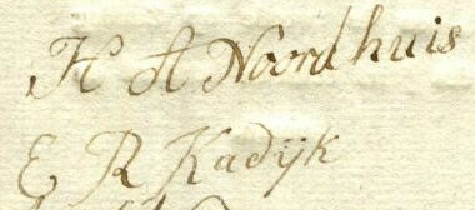 H A Noordhuis
E R Kadijk